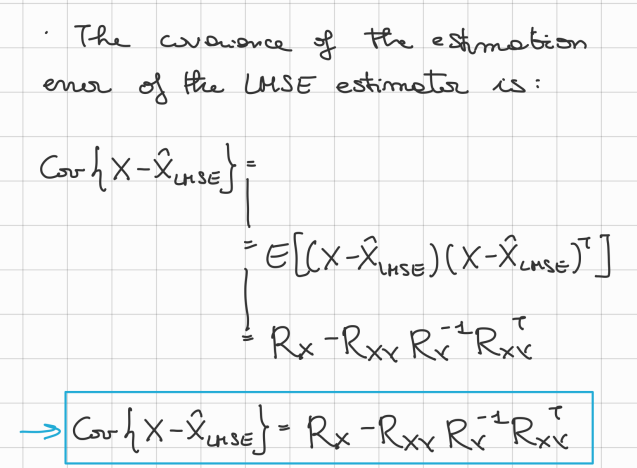 · The covariance of the estimation
error of the LMSE estimator is:
Cov{X-X̂_LMSE} =
= E[(X-X̂_LMSE)(X-X̂_LMSE)^T]
= R_X - R_XY R_Y^-1 R_XY^T
→ Cov{X-X̂_LMSE} = R_X - R_XY R_Y^-1 R_XY^T